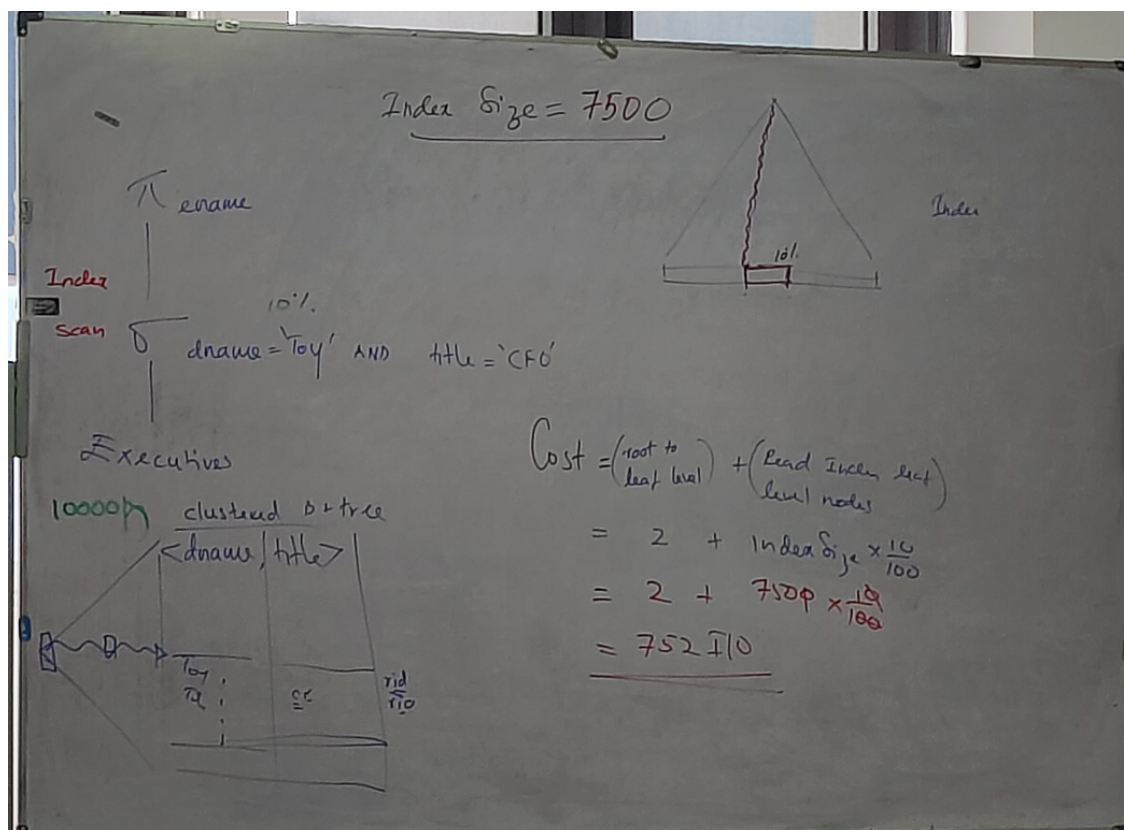 Index Size = 7500
π ename
Index
Scan
10%
σ dname = 'Toy' AND title = 'CFO'
Executives
10000
clustered B+tree
<dname, title>
Toy
rid
10%
Index
Cost = (root to leaf level) + (Read Index leaf level nodes)
= 2 + Index Size × 10/100
= 2 + 7500 × 10/100
= 752 I/O